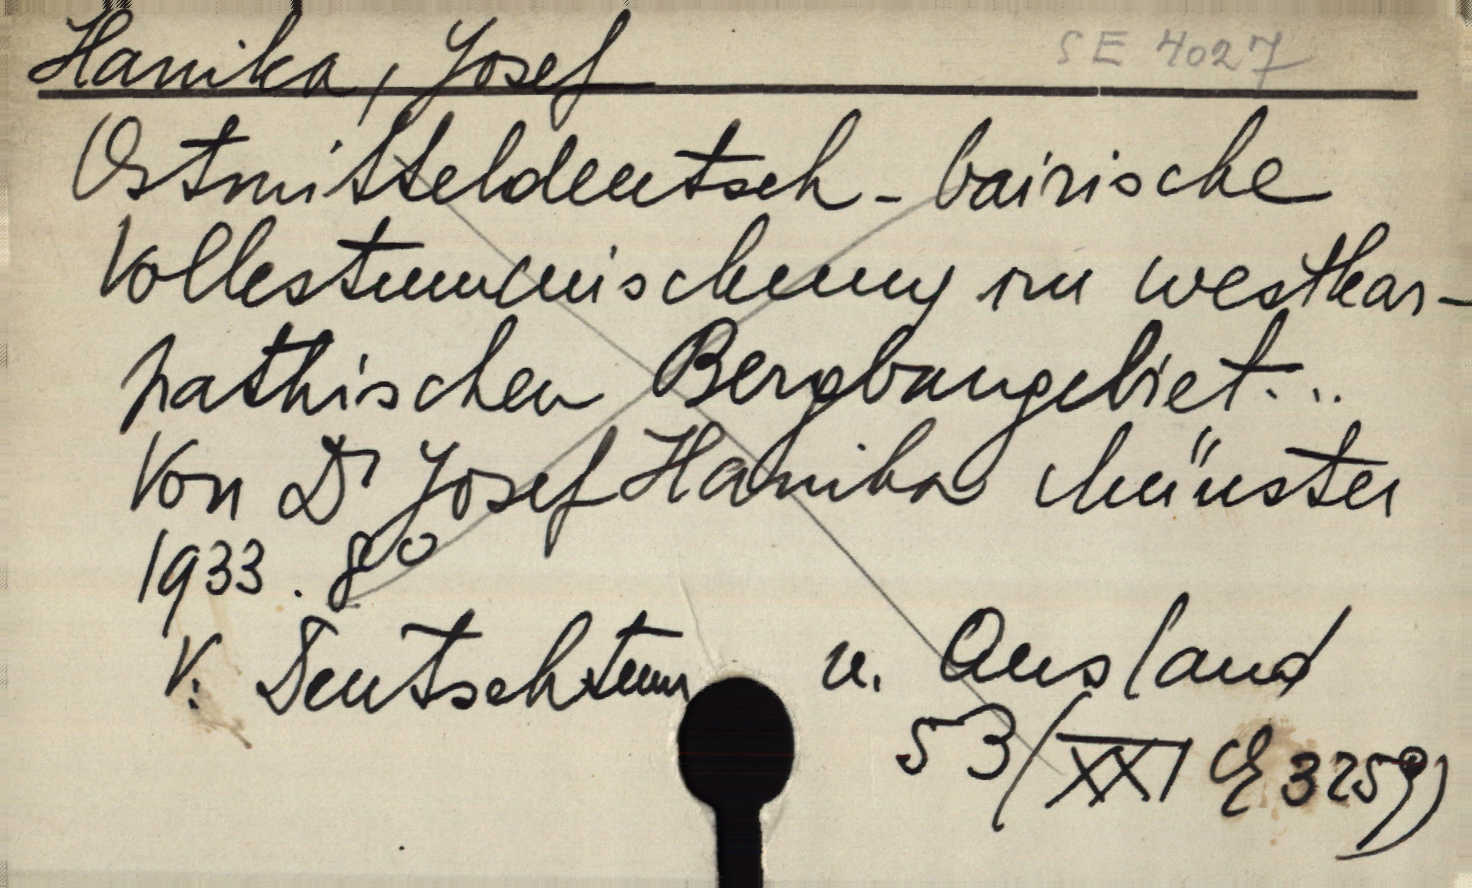 Hanika, Josef SE 4027
Ostmitteldeutsch-bairische
Volkstummischung im westkar-
pathischen Bergbaugebiet...
Von Dr Josef Hanika Münster
1933. 8°
V. Deutschtum u. Ausland
53/XXI E 3259)